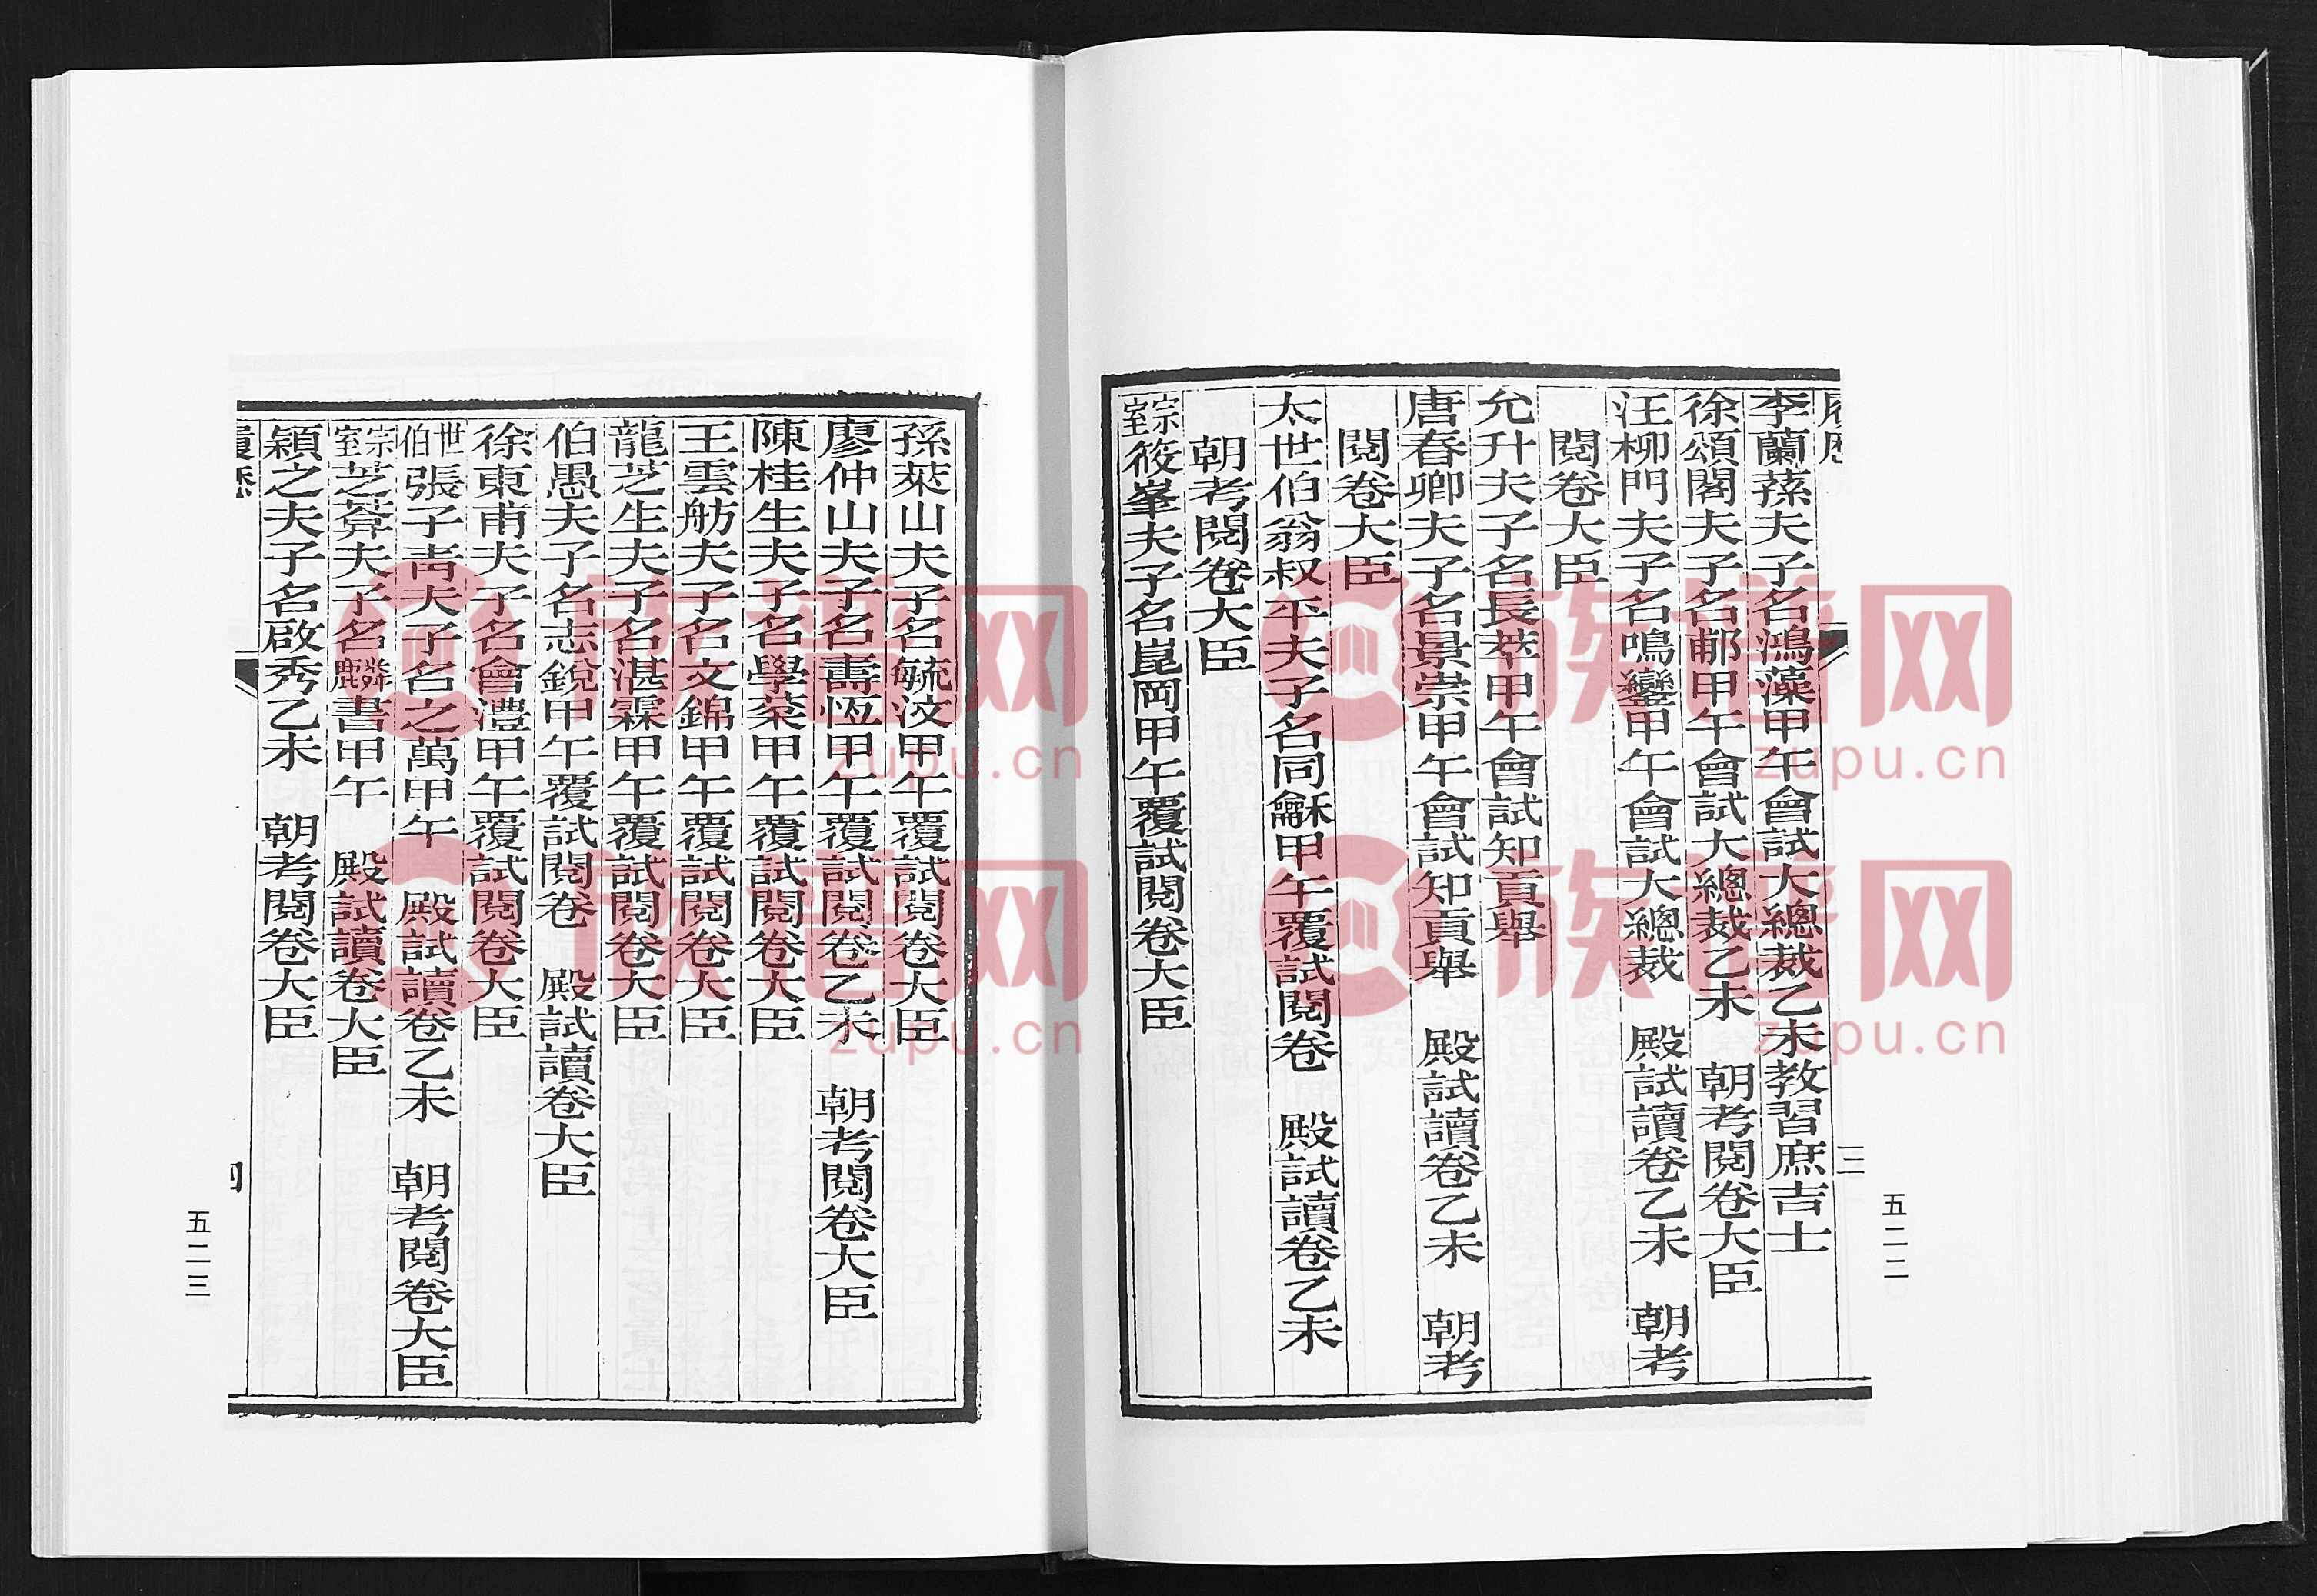 李蘭蓀夫子名鴻藻甲午會試大總裁乙未教習庶吉士
徐頌閣夫子名郙甲午會試大總裁乙未　朝考閱卷大臣
汪柳門夫子名鳴鑾甲午會試大總裁　殿試讀卷乙未　朝考
閱卷大臣
允升夫子名長萃甲午會試知貢舉
唐春卿夫子名景崇甲午會試知貢舉　殿試讀卷乙未　朝考
閱卷大臣
太世伯翁叔平夫子名同龢甲午覆試閱卷　殿試讀卷乙未
朝考閱卷大臣
宗室筱峯夫子名崑岡甲午覆試閱卷大臣
五二二
孫萊山夫子名毓汶甲午覆試閱卷大臣
廖仲山夫子名壽恆甲午覆試閱卷乙未　朝考閱卷大臣
陳桂生夫子名學棻甲午覆試閱卷大臣
王雲舫夫子名文錦甲午覆試閱卷大臣
龍芝生夫子名湛霖甲午覆試閱卷大臣
伯愚夫子名志銳甲午覆試閱卷　殿試讀卷大臣
徐東甫夫子名會灃甲午覆試閱卷大臣
世伯張子青夫子名之萬甲午　殿試讀卷乙未　朝考閱卷大臣
宗室芝葊夫子名麟書甲午　殿試讀卷大臣
穎之夫子名啟秀乙未　朝考閱卷大臣
四
五二三
族谱网
zupu.cn
族谱网
zupu.cn
族谱网
zupu.cn
族谱网
zupu.cn